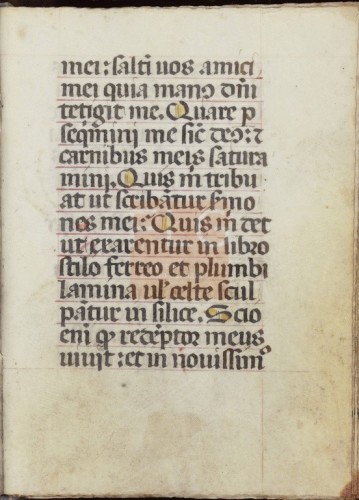 mei: saltī uos amici
mei quia manꝰ dn̄i
tetigit me. Quare ꝑ
seqmini me sic̄ deꝰ: ⁊
carnibus meis satura
mini. Quis m̄ tribu
at ut scribātur smo
nes mei: Quis m̄ det
ut exarentur in libro
stilo ferreo et plumbi
lamina ul' celte scul
pātur in silice. Scio
eni qꝫ redēptor meus
uiuit: et in nouissimº